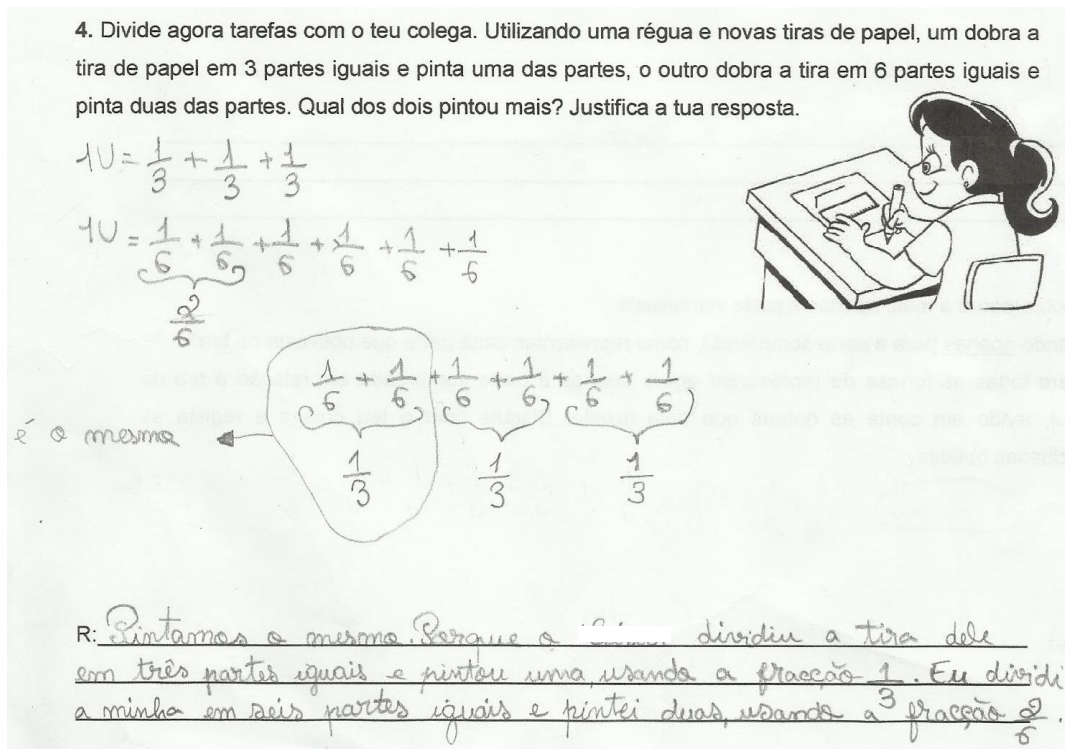 4. Divide agora tarefas com o teu colega. Utilizando uma régua e novas tiras de papel, um dobra a
tira de papel em 3 partes iguais e pinta uma das partes, o outro dobra a tira em 6 partes iguais e
pinta duas das partes. Qual dos dois pintou mais? Justifica a tua resposta.
1U = 1/3 + 1/3 + 1/3
1U = 1/6 + 1/6 + 1/6 + 1/6 + 1/6 + 1/6
2/6
1/6 + 1/6 + 1/6 + 1/6 + 1/6 + 1/6
é o mesmo
1/3 1/3 1/3
R: Pintamos o mesmo. Porque o dividiu a tira dele
em três partes iguais e pintou uma, usando a fracção 1/3. Eu dividi
a minha em seis partes iguais e pintei duas, usando a fracção 2/6.